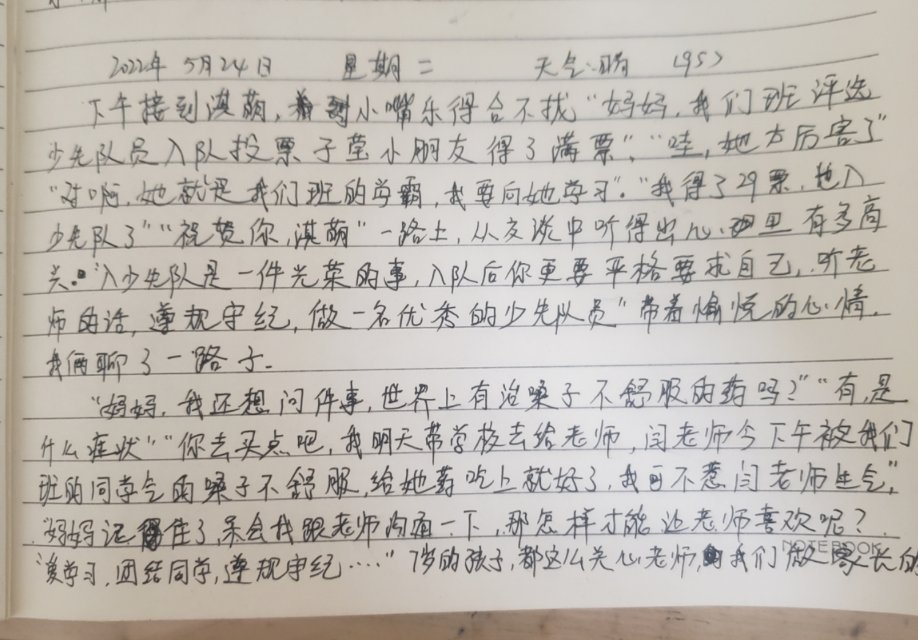 2022年 5月24日 星期二 天气:晴 (95)
下午接到淇萌,小嘴乐得合不拢"妈妈,我们班评选
少先队员入队投票子莹小朋友得了满票"、"哇,她太厉害了"
"对啊,她就是我们班的学霸,我要向她学习"。"我得了29票,也入
少先队了""祝贺你,淇萌"一路上,从交谈中听得出心里有多高
兴。"入少先队是一件光荣的事,入队后你更要严格要求自己,听老
师的话,遵规守纪,做一名优秀的少先队员"带着愉悦的心情,
我俩聊了一路子。
"妈妈,我还想问件事,世界上有治嗓子不舒服的药吗?""有,是
什么症状""你去买点吧,我明天带学校去给老师,闫老师今下午被我们
班的同学气的嗓子不舒服,给她药吃上就好了,我可不惹闫老师生气。"
"妈妈记住了,呆会我跟老师沟通一下,那怎样才能让老师喜欢呢?
学习,团结同学,遵规守纪····"7岁的孩子,都这么关心老师,我们做家长的
NOTEBOOK